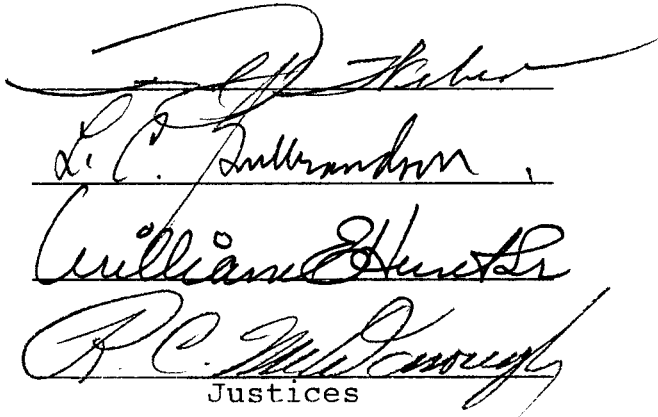 Weber
L. C. Gulbrandson
William E Hunt Sr
R. C. McDonough
Justices